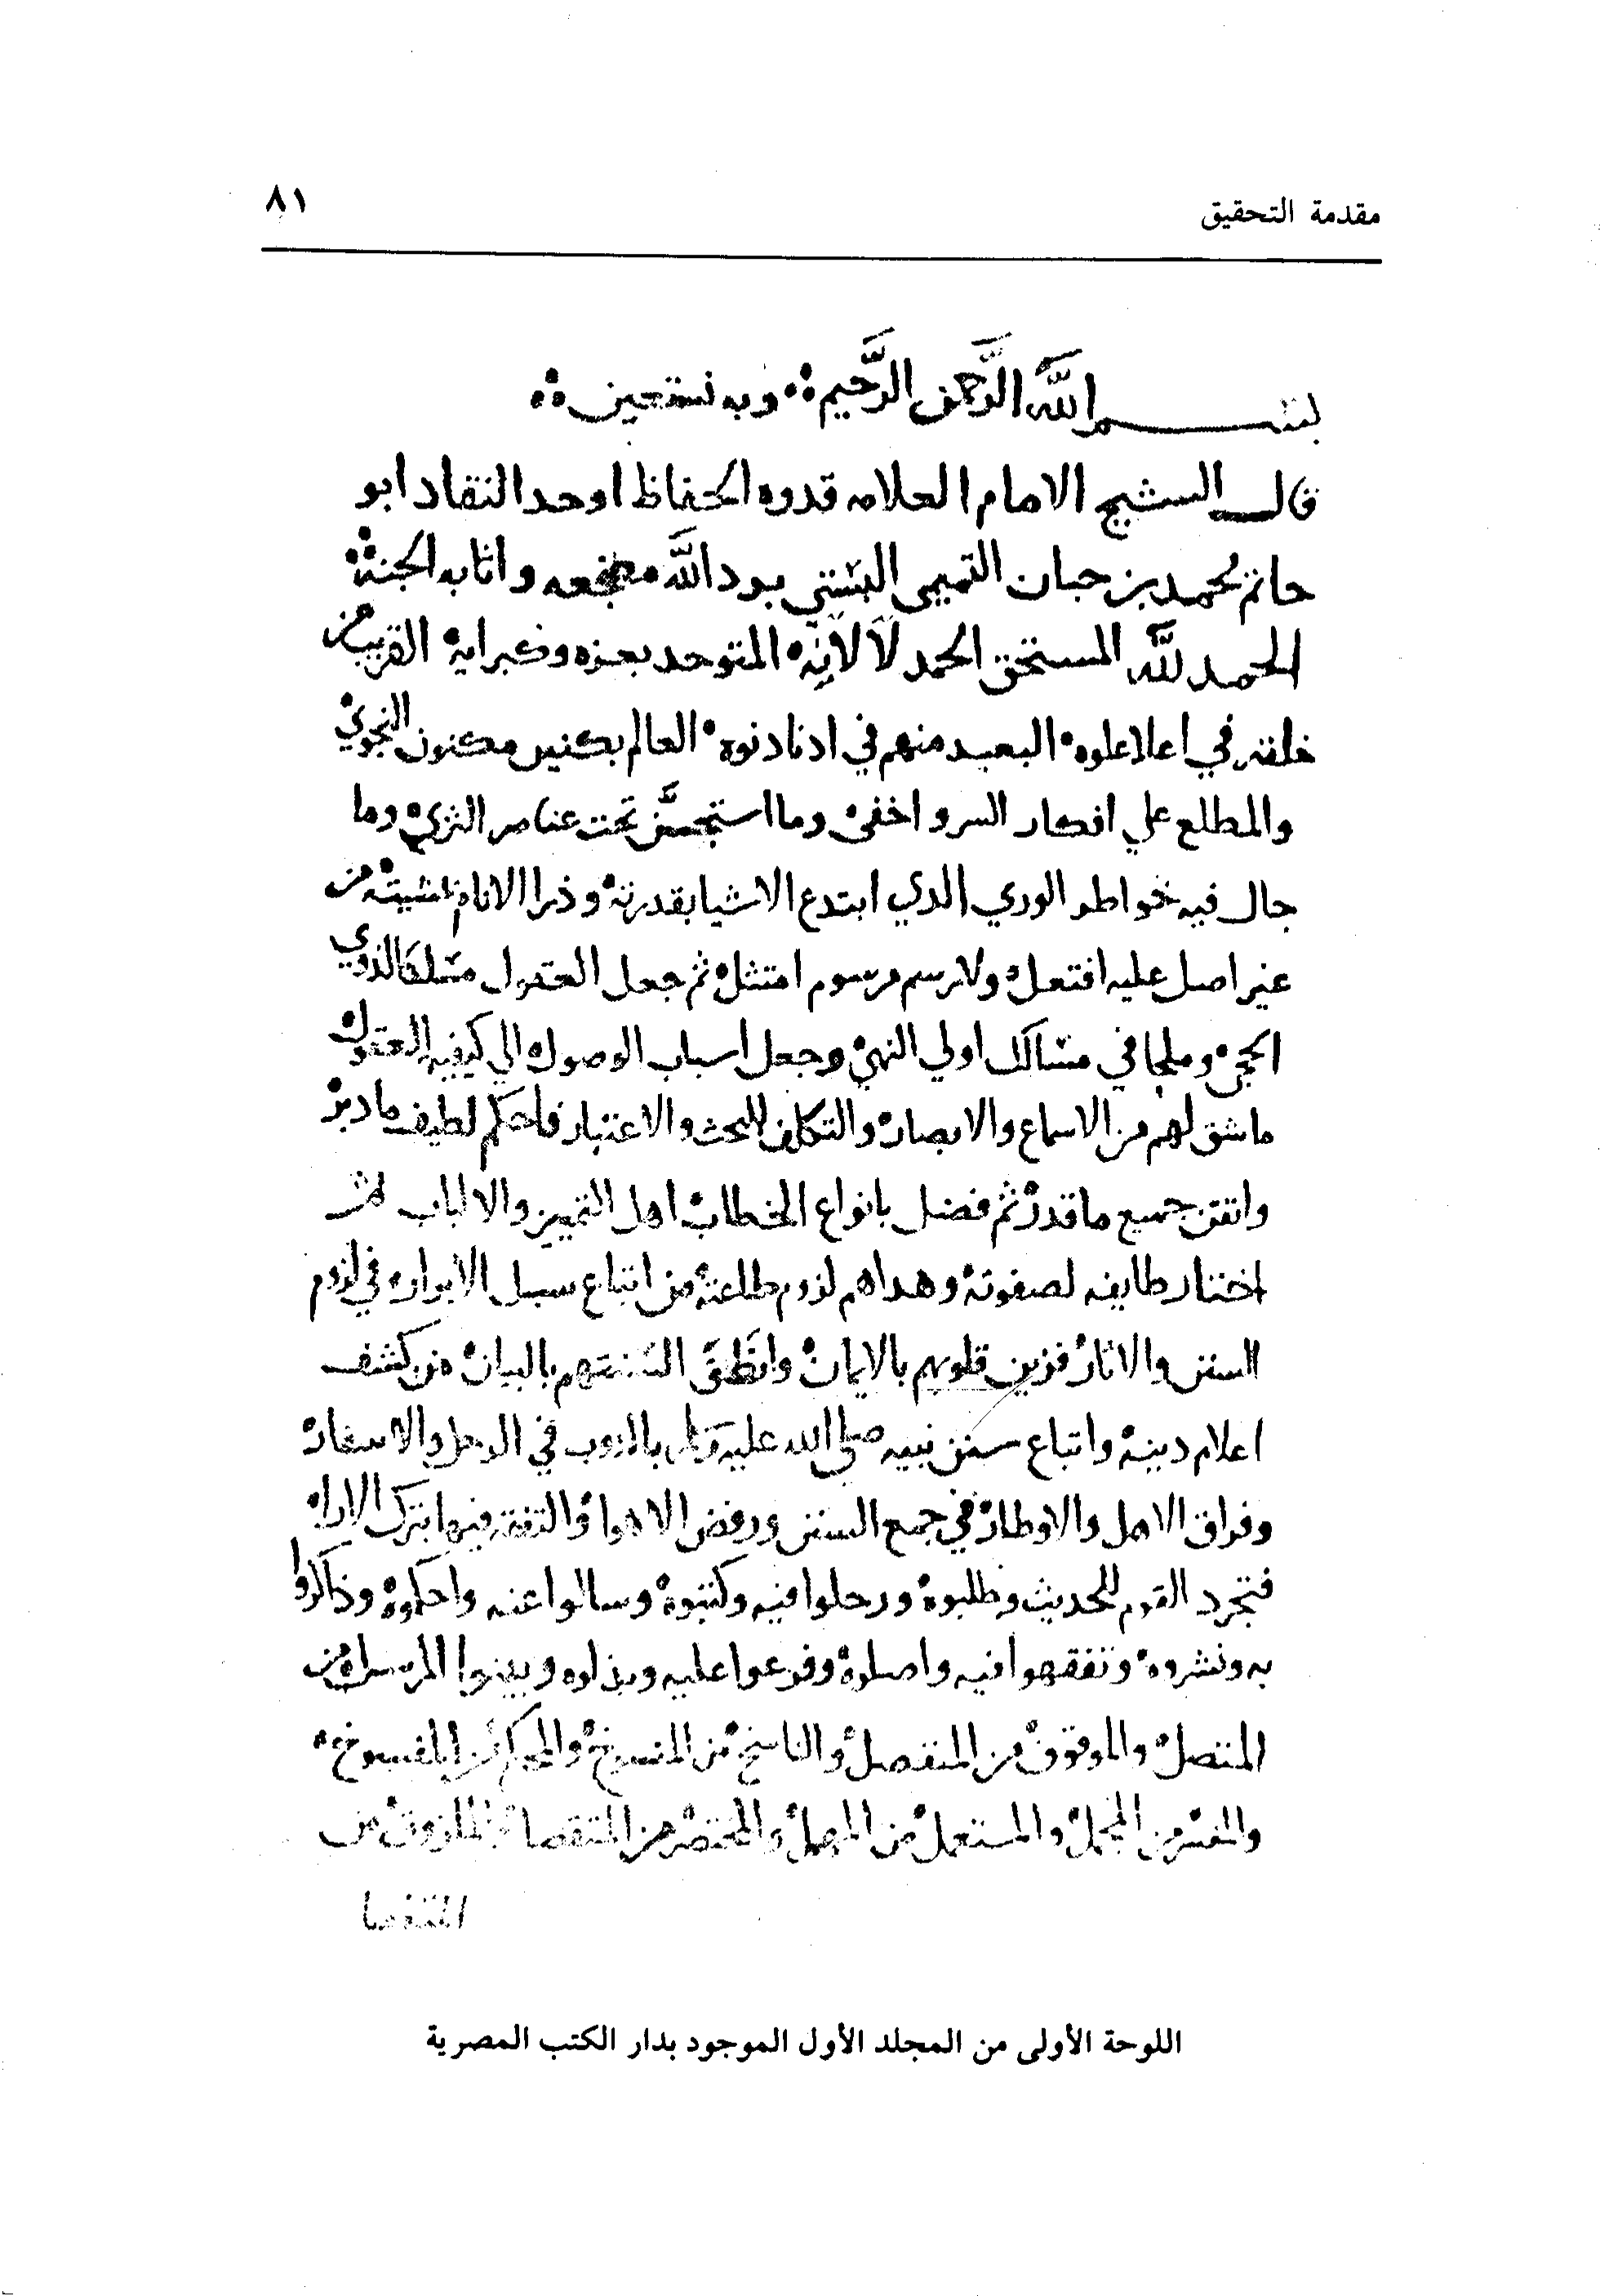 مقدمة التحقيق ٨١
بسم اللَّه الرَّحمن الرَّحيم وبه نستعين
قال الشيخ الامام العلامه قدوه الحفاظ اوحد النقاد ابو
حاتم محمد بن حبان التميمي البستي برد اللَّه مضجعه واثابه الجنة
الحمد للَّه المستحق الحمد لآلائه المتوحد بعزه وكبرايه القريب من
خلقه في اعلا علوه البعيد منهم في ادنا دنوه العالم بكنين مكنون النجوي
والمطلع علي افكار السر واخفى وما استجن تحت عناصر الثري وما
جال فيه خواطر الوري الدي ابتدع الاشيا بقدرته وذرا الانام بمشيته من
غير اصل عليه افتعل ولا رسم مرسوم امتثل ثم جعل العقول مسلكا لذوي
الحجى وملجا في مسالك اولي النهى وجعل اسباب الوصول الي كيفيه العقول
ما شق لهم من الاسماع والابصار والتكلف للبحث والاعتبار فاحكم لطيف ما دبر
واتقن جميع ما قدر ثم فضل بانواع الخطاب اهل التمييز والالباب ثم
اختار طايفه لصفوته وهداهم لزوم طاعته من اتباع سبل الابرار في لزوم
السنن والاثار فزين قلوبهم بالايمان وانطَقَ السنتهم بالبيان من كشف
اعلام دينه واتباع سنن نبيه صلى الله عليه وسلم بالدوب في الرحل والاسفار
وفراق الاهل والاوطار في جمع السنن ورفض الاهوا والتفقه فيها بترك الاراء
فتجرد القوم للحديث وطلبوه ورحلوا فيه وكتبوه وسالوا عنه واحكموه وذاكروا
به ونشروه وتفقهوا فيه واصلوه وفرعوا عليه وبذلوه وبينوا المرسل من
المتصل والموقوف من المنفصل والناسخ من المنسوخ والمحكم من المفسوخ
والمفسر من المجمل والمستعمل من المهمل والمختصر من المتقصا والملزوق من
المتفصا
اللوحة الأولى من المجلد الأول الموجود بدار الكتب المصرية